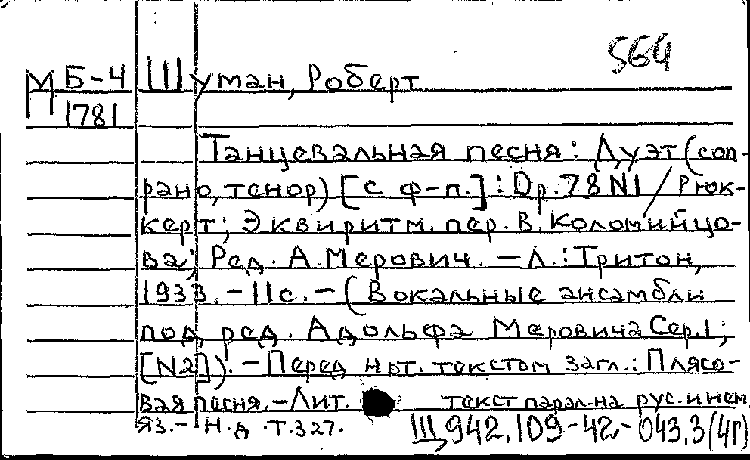 564
М Б-4 Шуман, Роберт
1781
Танцевальная песня: Дуэт (соп-
рано, тенор) [с ф-п.]: Op. 78 N1 / Рюк-
керт; Эквиритм. пер. В. Коломийцо-
ва; Ред. А. Мерович. - Л.: Тритон,
1933. - 11с. - (Вокальные ансамбли
под ред. Адольфа Меровича Сер. 1;
[N2]). - Перед нот. текстом загл.: Плясо-
вая песня. - Лит. текст парал. на рус. и нем.
яз. - Н.д. Т.327. Щ942.109-42-043.3(4Г)